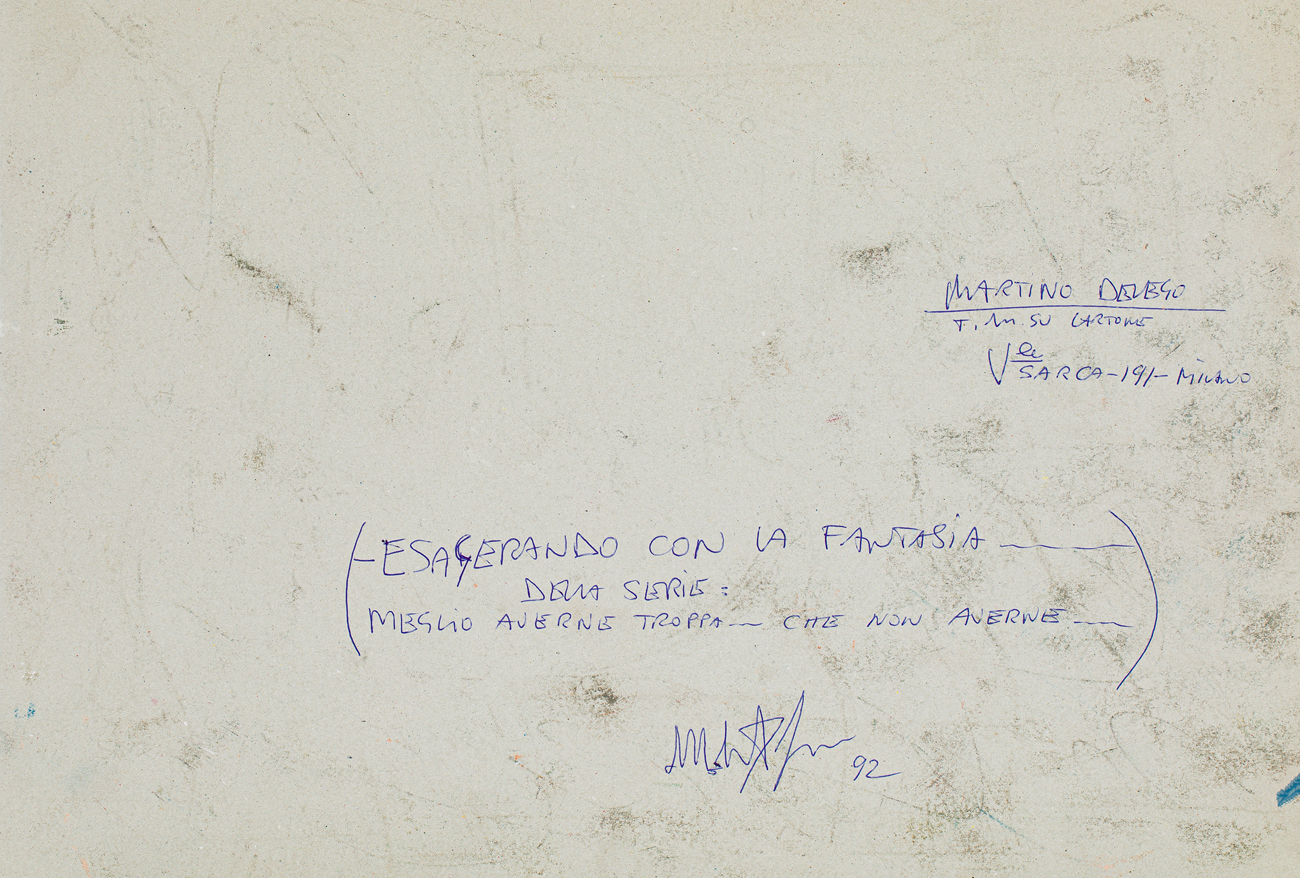 MARTINO DELEGO
T. M. SU CARTONE
V.le SARCA-191- MILANO
(-ESAGERANDO CON LA FANTASIA
DELLA SERIE:
MEGLIO AVERNE TROPPA CHE NON AVERNE)
92